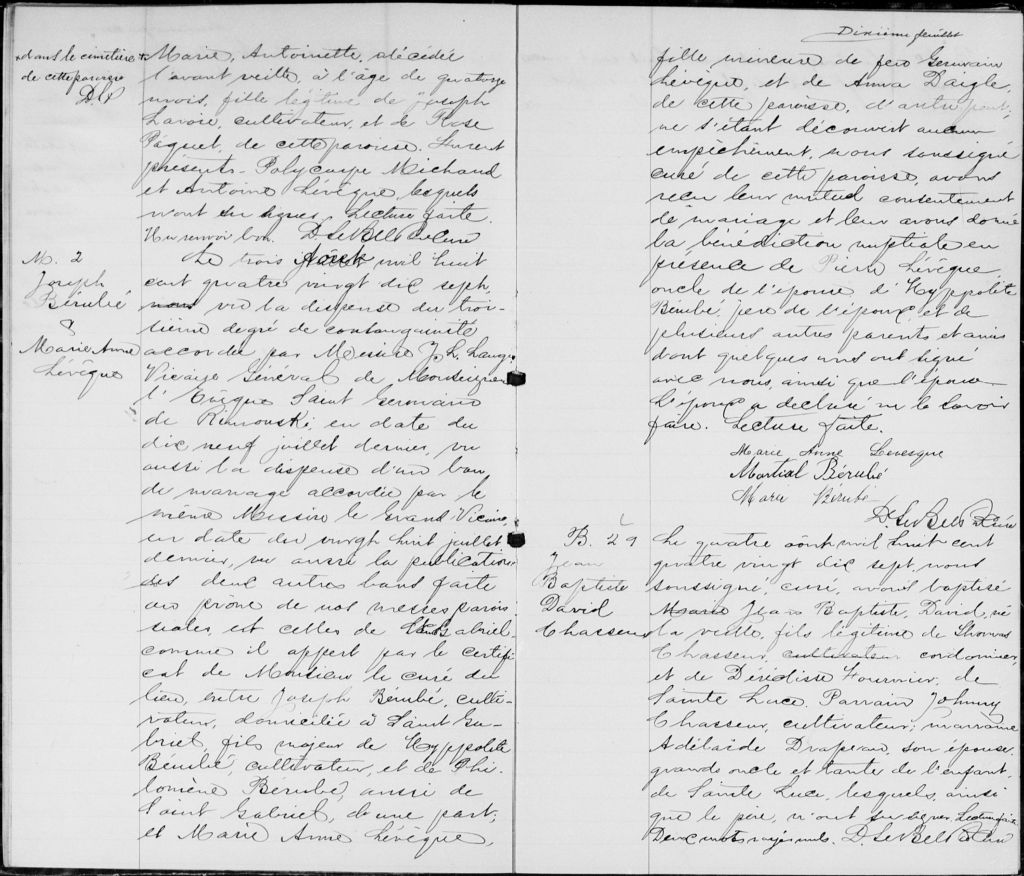 x dans le cimetière
de cette paroisse
x Marie, Antoinette, décédée
l'avant veille, à l'âge de quatorze
mois, fille légitime de Joseph
Lavoie, cultivateur, et de Rose
Paquet, de cette paroisse. Furent
présents Polycarpe Michaud
et Antoine Lévêque, lesquels
n'ont su signer. Lecture faite.
Un renvoi bon.
M. 2
Joseph
Bérubé
&
Marie Anne
Lévêque
Le trois Aout mil huit
cent quatre vingt dix sept,
nous vu la dispense du troi-
sième degré de consanguinité
accordée par Messire J. L. Langis
Vicaire Général de Monseigneur
l'Evêque Saint Germain
de Rimouski, en date du
dix neuf juillet dernier, vu
aussi la dispense d'un ban
de mariage accordée par le
même Messire le Grand Vicaire,
en date du vingt huit juillet
dernier, vu aussi la publication
des deux autres bans faite
au prône de nos messes parois
siales, et celles de St Gabriel,
comme il appert par le certifi
cat de Monsieur le curé du
lieu, entre Joseph Bérubé, culti-
vateur, domicilié à Saint Ga-
briel, fils majeur de Hyppolite
Bérubé, cultivateur, et de Phi-
lomène Bérubé, aussi de
Saint Gabriel, d'une part;
et Marie Anne Lévêque,
Dixième feuillet
fille mineure de feu Germain
Lévêque, et de Anna Daigle,
de cette paroisse, d'autre part;
ne s'étant découvert aucun
empêchement, nous soussigné
curé de cette paroisse, avons
reçu leur mutuel consentement
de mariage et leur avons donné
la bénédiction nuptiale en
présence de Pierre Lévêque,
oncle de l'épouse, d'Hyppolite
Bérubé, père de l'époux, et de
plusieurs autres parents et amis
dont quelques uns ont signé
avec nous, ainsi que l'épouse
L'époux a déclaré ne le savoir
faire. Lecture faite.
Marie Anne Levesque
Martial Bérubé
Marie Bérubé
B. 29
Jean
Baptiste
David
Chasseur
Le quatre août mil huit cent
quatre vingt dix sept, nous
soussigné, curé, avons baptisé
Marie Jean Baptiste, David, né
la veille, fils légitime de Thomas
Chasseur, cultivateur cordonnier,
et de Fournier, de
Sainte Luce. Parrain Johnny
Chasseur, cultivateur; marraine
Adélaïde Drapeau, son épouse,
grands oncle et tante de l'enfant,
de Sainte Luce, lesquels, ainsi
que le père, n'ont su signer. Lecture faite
Deux mots rayés nuls.